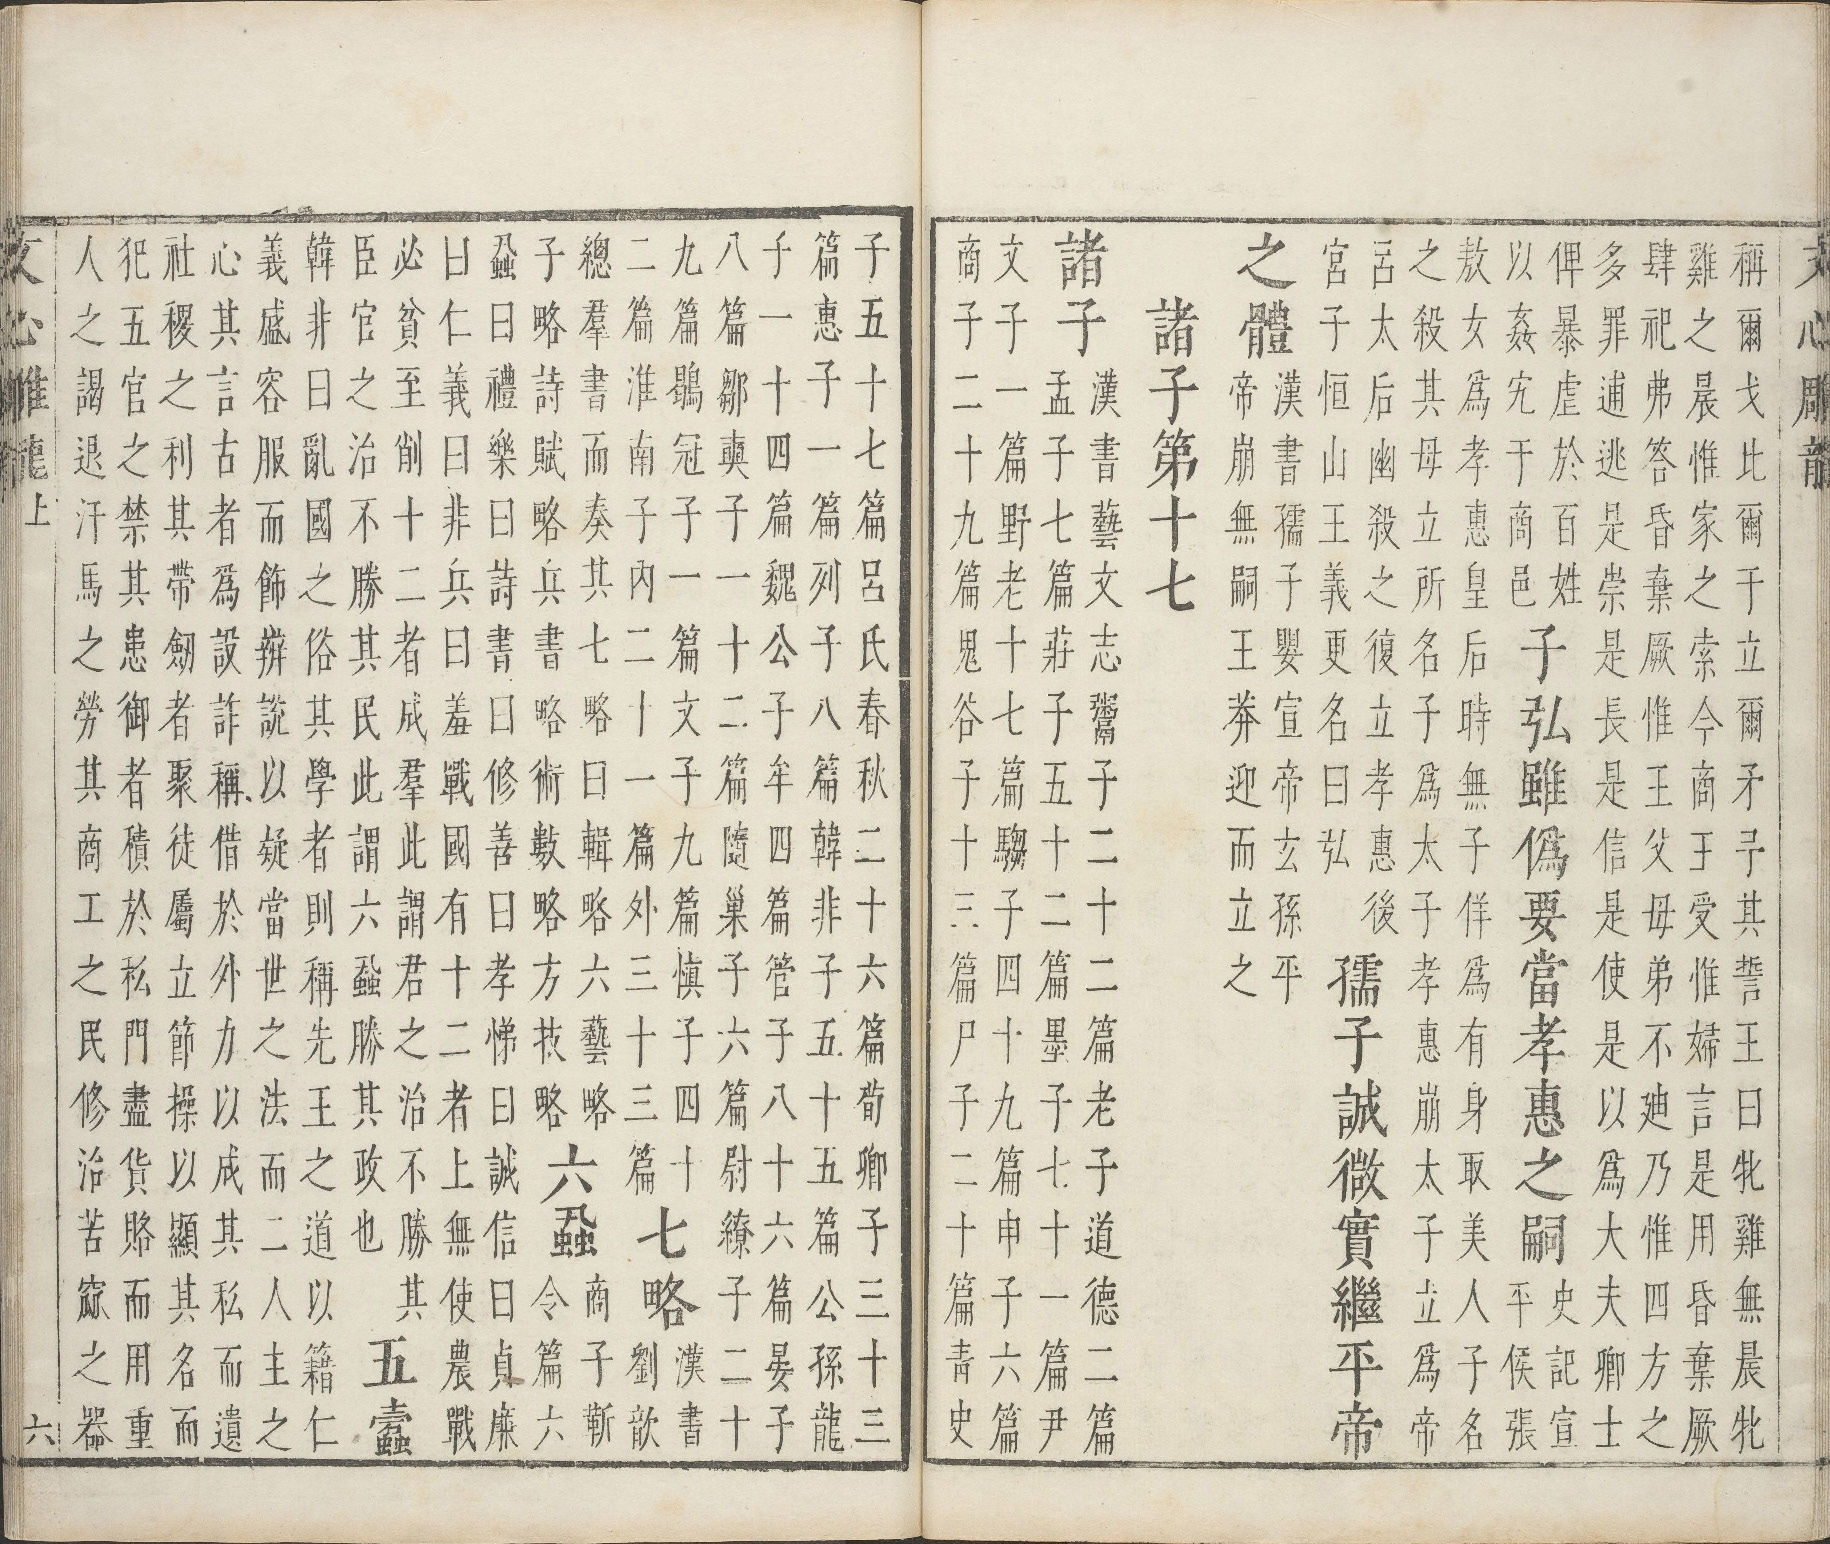 文心雕龍
稱爾戈比爾干立爾矛予其誓王曰牝雞無晨牝
雞之晨惟家之索今商王受惟婦言是用昏棄厥
肆祀弗答昏棄厥惟王父母弟不廸乃惟四方之
多罪逋逃是崇是長是信是使是以爲大夫卿士
俾暴虐於百姓
以姦宄于商邑
子弘雖僞要當孝惠之嗣
史記宣
平侯張
敖女爲孝惠皇后時無子佯爲有身取美人子名
之殺其母立所名子爲太子孝惠崩太子立爲帝
呂太后幽殺之復立孝惠後
宮子恒山王義更名曰弘
孺子誠微實繼平帝
之體
漢書孺子嬰宣帝玄孫平
帝崩無嗣王莽迎而立之
諸子第十七
諸子
漢書藝文志鬻子二十二篇老子道德二篇
孟子七篇莊子五十二篇墨子七十一篇尹
文子一篇野老十七篇騶子四十九篇申子六篇
商子二十九篇鬼谷子十三篇尸子二十篇青史
子五十七篇呂氏春秋二十六篇荀卿子三十三
篇惠子一篇列子八篇韓非子五十五篇公孫龍
子一十四篇魏公子牟四篇管子八十六篇晏子
八篇鄒奭子一十二篇隨巢子六篇尉繚子二十
九篇鶡冠子一篇文子九篇慎子四十
二篇淮南子內二十一篇外三十三篇
七略
漢書
劉歆
總羣書而奏其七略曰輯略六藝略
子略詩賦略兵書略術數略方技略
六蝨
商子靳
令篇六
蝨曰禮樂曰詩書曰修善曰孝悌曰誠信曰貞廉
曰仁義曰非兵曰羞戰國有十二者上無使農戰
必貧至削十二者成羣此謂君之治不勝其
臣官之治不勝其民此謂六蝨勝其政也
五蠹
韓非曰亂國之俗其學者則稱先王之道以籍仁
義盛容服而飾辨說以疑當世之法而二人主之
心其言古者爲設詐稱借於外力以成其私而遺
社稷之利其帶劒者聚徒屬立節操以顯其名而
犯五官之禁其患御者積於私門盡貨賂而用重
人之謁退汗馬之勞其商工之民修治苦窳之器
文心雕龍上
六